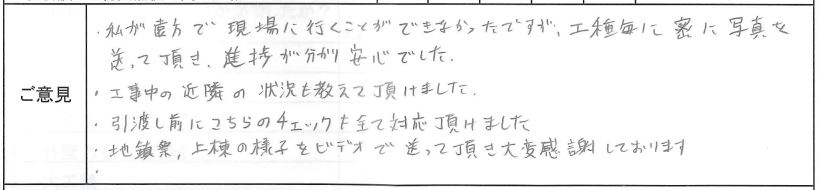 ご意見
・私が遠方で現場に行くことができなかったですが、工種毎に密に写真を
送って頂き、進捗が分かり安心でした.
・工事中の近隣の状況も教えて頂けました.
・引渡し前にこちらのチェックも全て対応頂けました
・地鎮祭,上棟の様子をビデオで送って頂き大変感謝しております
・